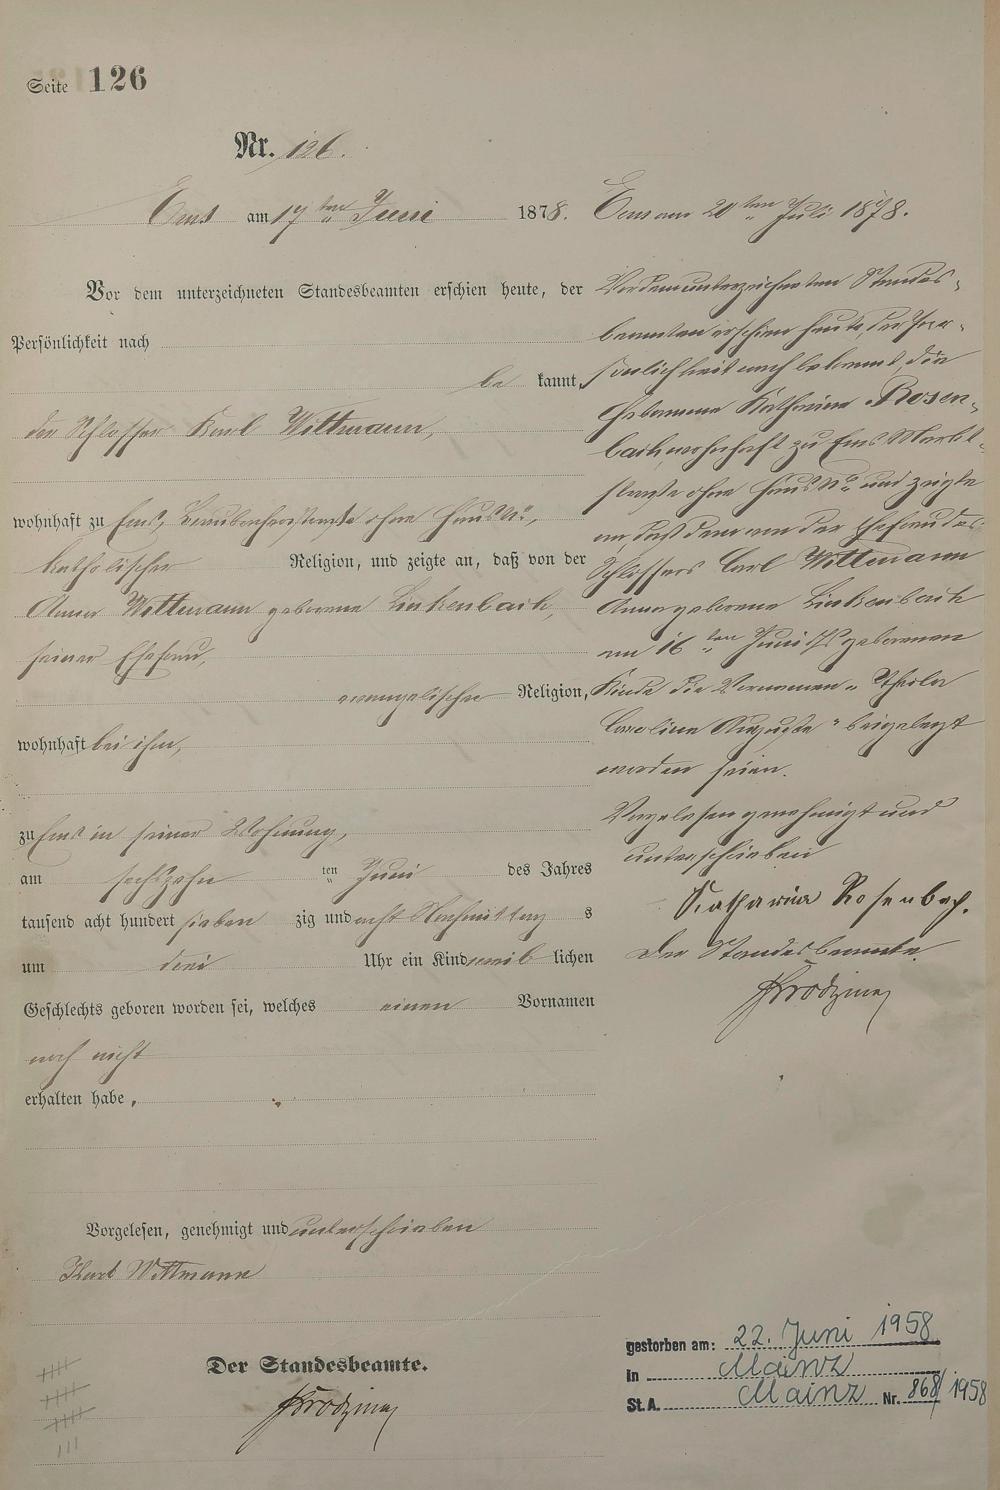 Seite 126
Nr. 126.
Ems am 17ten Juni 1878.
Vor dem unterzeichneten Standesbeamten erschien heute, der
Persönlichkeit nach
be kannt,
der Schlosser Karl Wittmann,
wohnhaft zu Ems, ohne Haus No,
katholischer Religion, und zeigte an, daß von der
Anna Wittmann geborene Linkenbach,
seiner Ehefrau,
evangelischer Religion,
wohnhaft bei ihm,
zu Ems in seiner Wohnung,
am sechszehn ten Juni des Jahres
tausend acht hundert sieben zig und acht Nachmittag s
um drei Uhr ein Kind weib lichen
Geschlechts geboren worden sei, welches einen Vornamen
noch nicht
erhalten habe.
Vorgelesen, genehmigt und unterschrieben
Karl Wittmann
Der Standesbeamte.
Ems am 20ten Juli 1878.
Vor dem unterzeichneten Standes-
beamten erschien heute, der Per-
sönlichkeit nach bekannt, die
Hebamme Katharina Rosen-
bach wohnhaft zu Ems Markt-
straße ohne Haus No und zeigte
an, daß dem von der Ehefrau des
Schlossers Carl Wittmann
Anna geborene Linkenbach
am 16ten Juni geborenen
Kinde die Vornamen "Thekla
Caroline Auguste" beigelegt
worden seien.
Vorgelesen genehmigt und
unterschrieben
Katharina Rosenbach.
Der Standesbeamte.
gestorben am: 22. Juni 1958
in Mainz
St.A. Mainz Nr. 868/1958